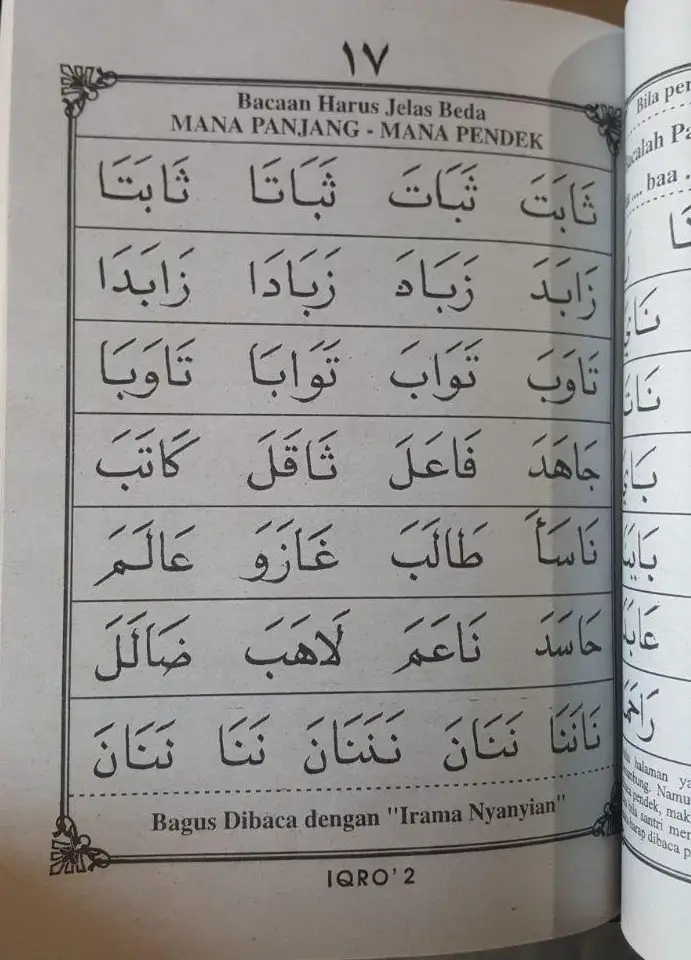 ١٧
Bacaan Harus Jelas Beda
MANA PANJANG - MANA PENDEK
ثَابَتَ ثَبَاتَ ثَبَاتَا ثَابَتَا
زَابَدَ زَبَادَ زَبَادَا زَابَدَا
تَاوَبَ تَوَابَ تَوَابَا تَاوَبَا
جَاهَدَ فَاعَلَ ثَاقَلَ كَاتَبَ
نَاسَأَ طَالَبَ غَازَوَ عَالَمَ
حَاسَدَ نَاعَمَ لَاهَبَ ضَالَلَ
نَانَنَا نَنَانَ نَنَنَانَ نَنَا نَنَانَ
Bagus Dibaca dengan "Irama Nyanyian"
IQRO' 2
Bila
baa
نَا
بَايَنَا
halaman
pendek, mak
santri
dibaca